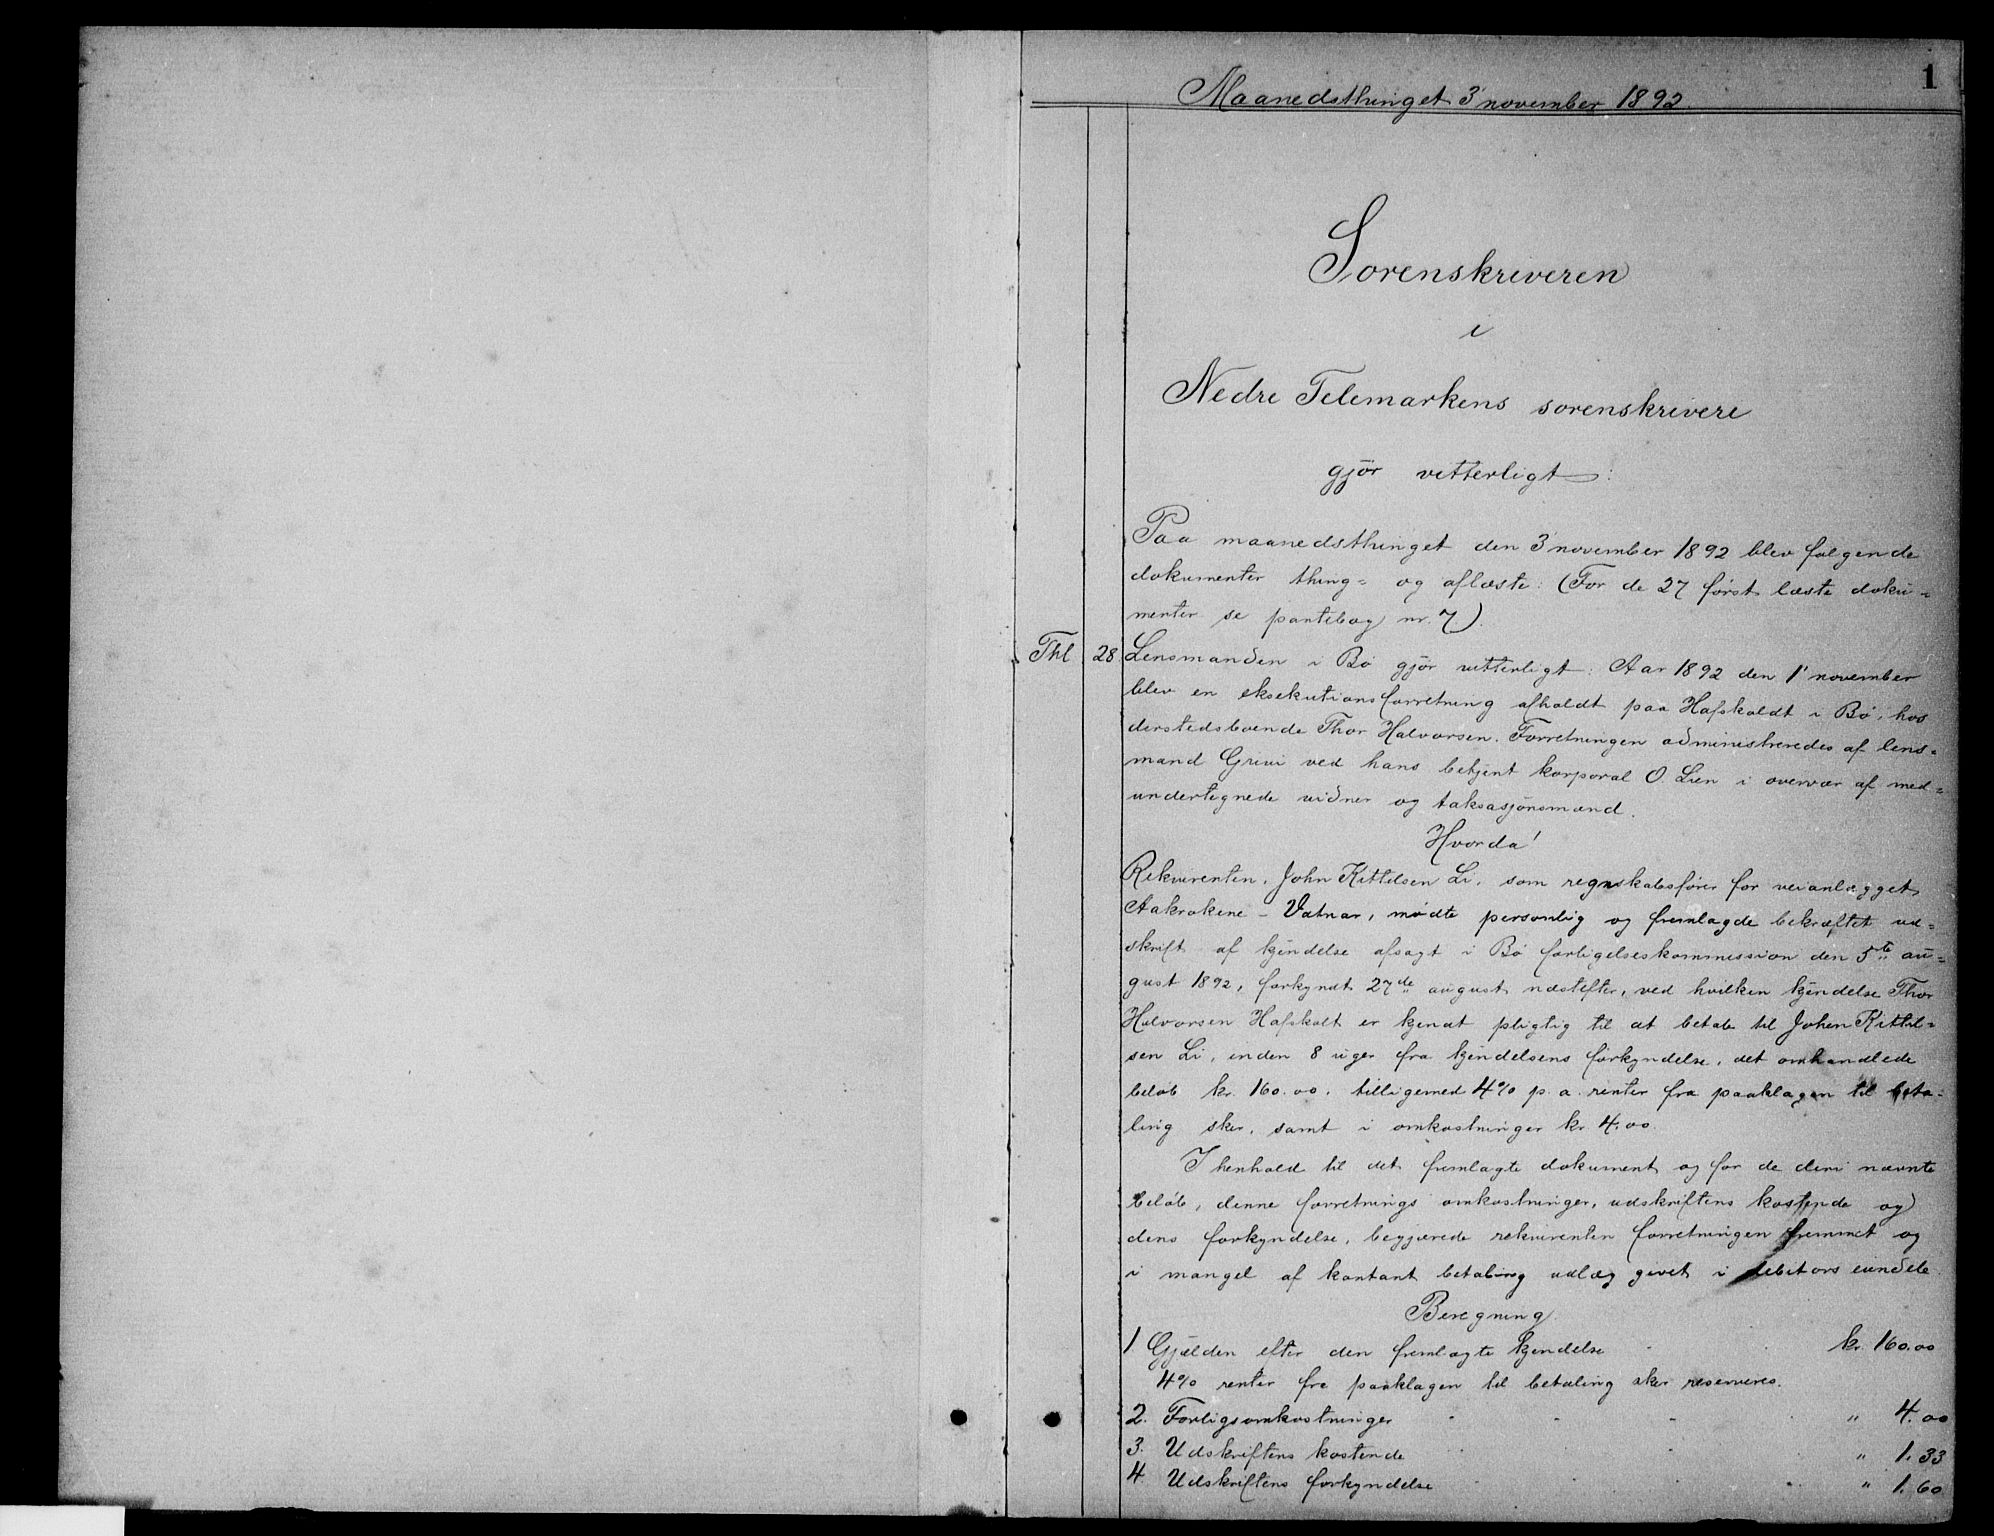 1
Maanedsthinget 3' november 1892.
Sorenskriveren
i
Nedre Telemarkens sorenskriveri
gjör vitterligt:
Paa maanedsthinget den 3' november 1892 blev følgende
dokumenter thing= og aflæste: (For de 27 först læste doku-
menter se pantebog nr. 7).
Thl 28 Lensmanden i Bø gjör vitterligt: Aar 1892 den 1' november
blev en eksekutionsforretning afholdt paa Hafskoldt i Bø, hos
derstedsboende Thor Halvorsen. Forretningen administreredes af lens=
mand Grivi ved hans betjent korporal O. Lien i overvær af med=
undertegnede vidner og taksasjonsmænd.
Hvorda!
Rekvirenten, John Kittilsen Li, som regnskabsfører for veianlægget
Aakrokene - Vatnar, mødte personlig og fremlagde bekræftet ud=
skrift af kjendelse afsagt i Bø forligelseskommission den 5te au=
gust 1892, forkyndt 27de august næstefter, ved hvilken kjendelse Thor
Halvorsen Hafskolt er kjendt pligtig til at betale til Johen Kittil=
sen Li, inden 8 uger fra kjendelsens forkyndelse, det omhandlede
beløb kr. 160.00. tilligemed 4% p. a. renter fra paaklagen til beta=
ling sker, samt i omkostninger kr. 4.00.
I henhold til det fremlagte dokument og for de deri nævnte
beløb, denne forretnings omkostninger, udskriftens kostende og
dens forkyndelse, begjærede rekvirenten forretningen fremmet og
i mangel af kontant betaling udlæg givet i debitors eiendele.
Beregning.
1. Gjælden efter den fremlagte kjendelse kr. 160.00
4% renter fra paaklagen til betaling sker reserveres.
2. Forligsomkostninger " 4.00
3. Udskriftens kostende " 1.33
4 Udskriftens forkyndelse " 1.60